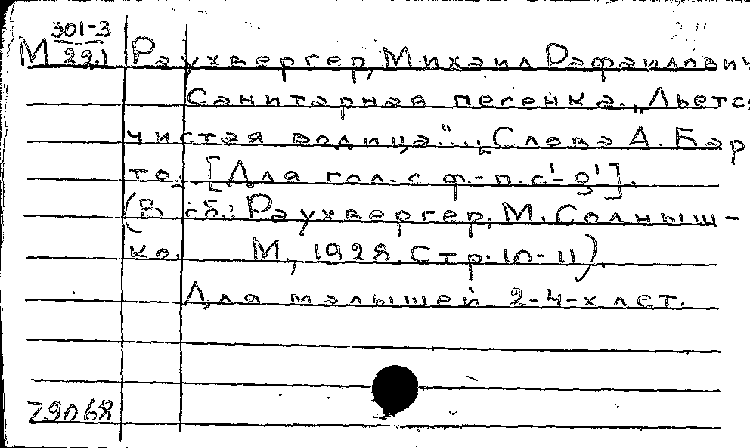 М 301-3
29.1
Раухвергер, Михаил Рафаилович
Санитарная песенка. „Льется
чистая водица". Слова А. Бар
то. [Для гол. с ф.-п. c¹-g¹].
(В сб.: Раухвергер, М. Солныш-
ко. М., 1928. Стр. 10-11).
Для малышей 2-4-х лет.
Z9068